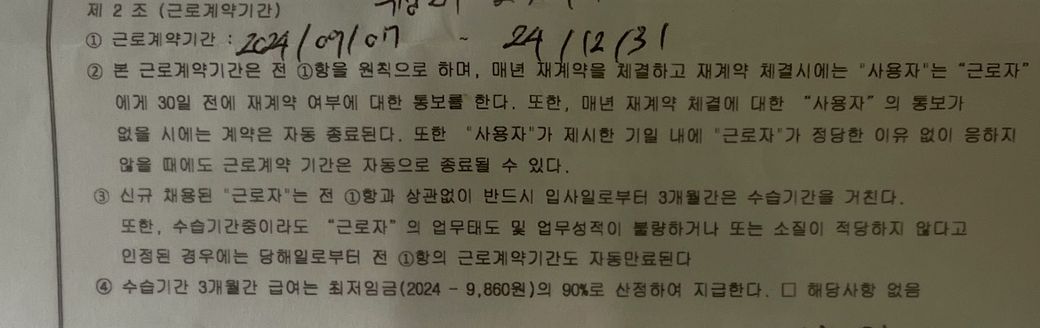 제 2 조 (근로계약기간)
① 근로계약기간 : 2024/09/07 ~ 24/12/31
② 본 근로계약기간은 전 ①항을 원칙으로 하며, 매년 재계약을 체결하고 재계약 체결시에는 "사용자"는 "근로자"
에게 30일 전에 재계약 여부에 대한 통보를 한다. 또한, 매년 재계약 체결에 대한 "사용자" 의 통보가
없을 시에는 계약은 자동 종료된다. 또한 "사용자"가 제시한 기일 내에 "근로자"가 정당한 이유 없이 응하지
않을 때에도 근로계약 기간은 자동으로 종료될 수 있다.
③ 신규 채용된 "근로자"는 전 ①항과 상관없이 반드시 입사일로부터 3개월간은 수습기간을 거친다.
또한, 수습기간중이라도 "근로자" 의 업무태도 및 업무성적이 불량하거나 또는 소질이 적당하지 않다고
인정된 경우에는 당해일로부터 전 ①항의 근로계약기간도 자동만료된다
④ 수습기간 3개월간 급여는 최저임금(2024 - 9,860원)의 90%로 산정하여 지급한다. □ 해당사항 없음